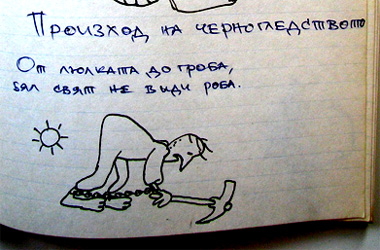 Произход на черногледството
От люлката до гроба,
бял свят не види роба.